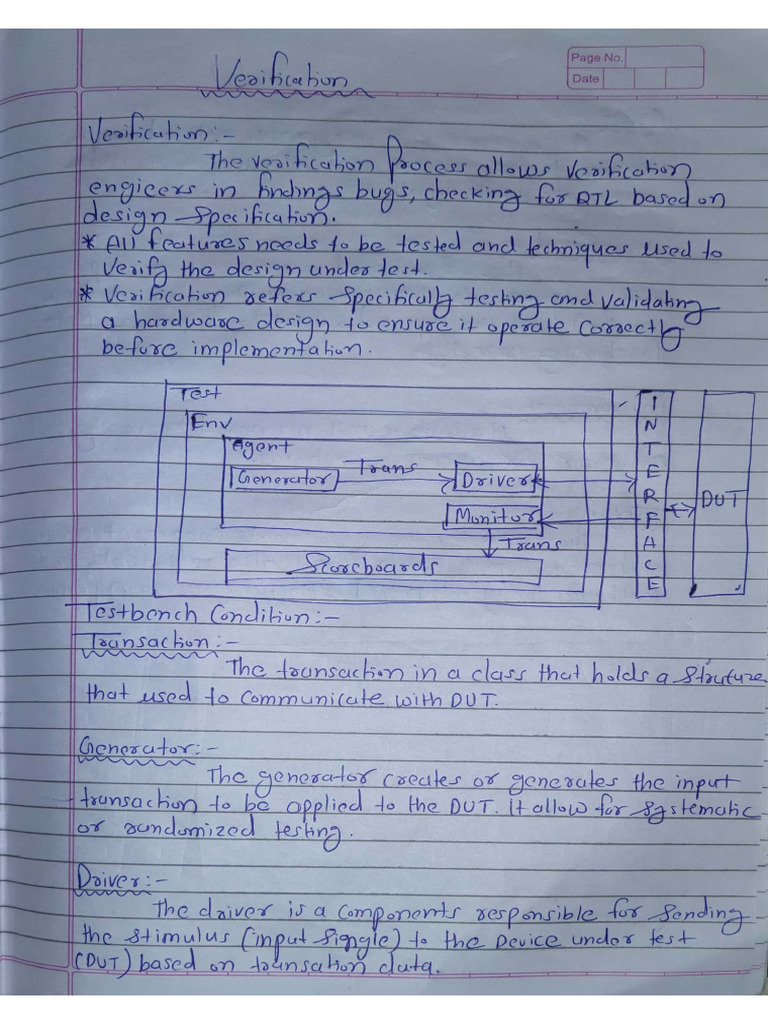 Verification
Page No.
Date
Verification:-
The verification Process allows verification
engicers in findings bugs, checking for RTL based on
design Specification.
* All features needs to be tested and techniques used to
verify the design under test.
* Verification refers Specifically testing and validating
a hardware design to ensure it operate correctly
before implementation.
Test
Env
Agent
Generator
Trans
Driver
Monitor
Trans
Scoreboards
INTERFACE
DUT
Testbench Condition:-
Transaction:-
The transaction in a class that holds a Struture
that used to communicate with DUT.
Generator:-
The generator creates or generates the input
transaction to be applied to the DUT. It allow for systematic
or randomized testing.
Driver:-
The driver is a components responsible for Sending
the stimulus (input Signgle) to the Device under test
(DUT) based on transation data.